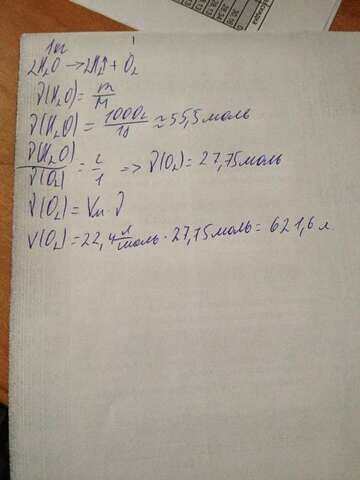 1 л
2H₂O → 2H₂↑ + O₂
ν(H₂O) = m/M
ν(H₂O) = 1000г/18 ≈ 55,5 моль
ν(H₂O)/ν(O₂) = 2/1 => ν(O₂) = 27,75 моль
ν(O₂) = Vm · ν
V(O₂) = 22,4 л/моль · 27,75 моль = 621,6 л.